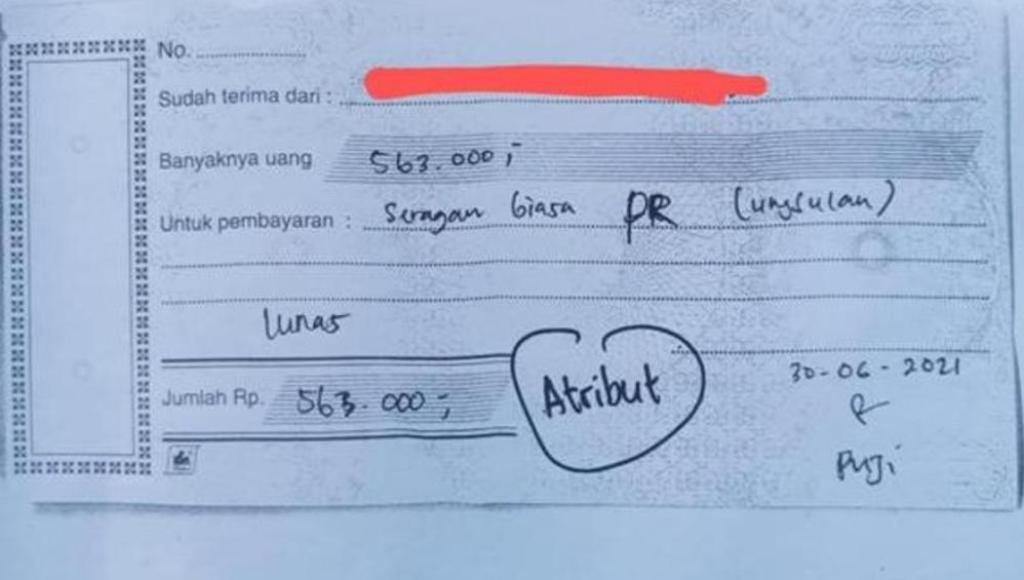 No. ....................
Sudah terima dari :
Banyaknya uang 563.000,-
Untuk pembayaran : Seragam biasa PR (Lungsulan)
Lunas
Jumlah Rp. 563.000,-
Atribut
30-06-2021
Puji